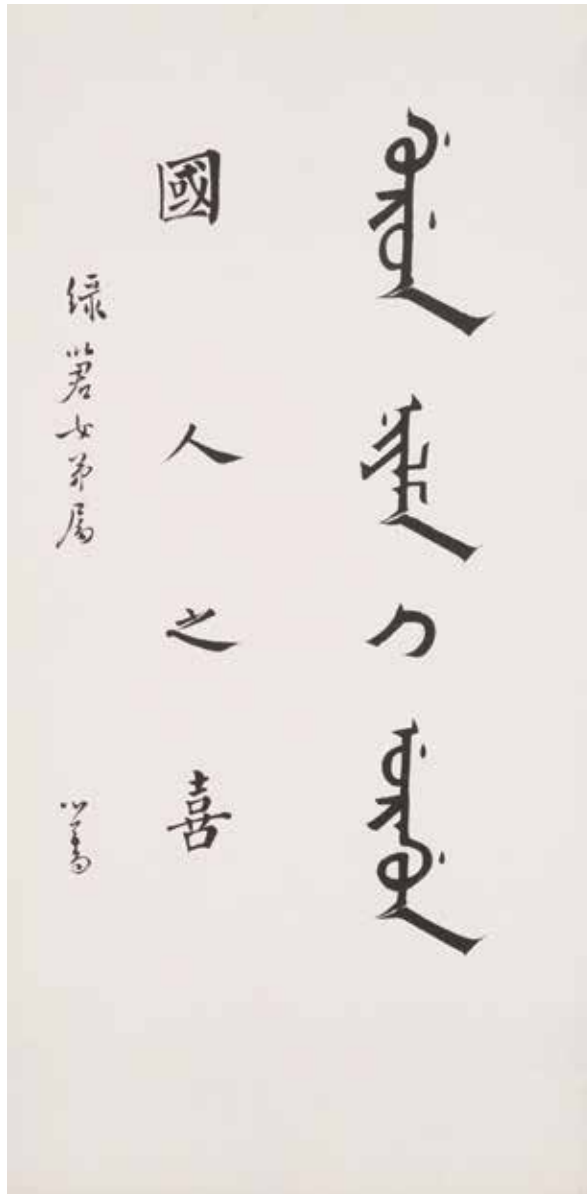 ᡤᡠᡵᡠᠨ ᠨᡳᠶᠠᠯᠮᠠ ᡳ ᡠᡵᡤᡠᠨ
國人之喜
綠女弟屬 心畬